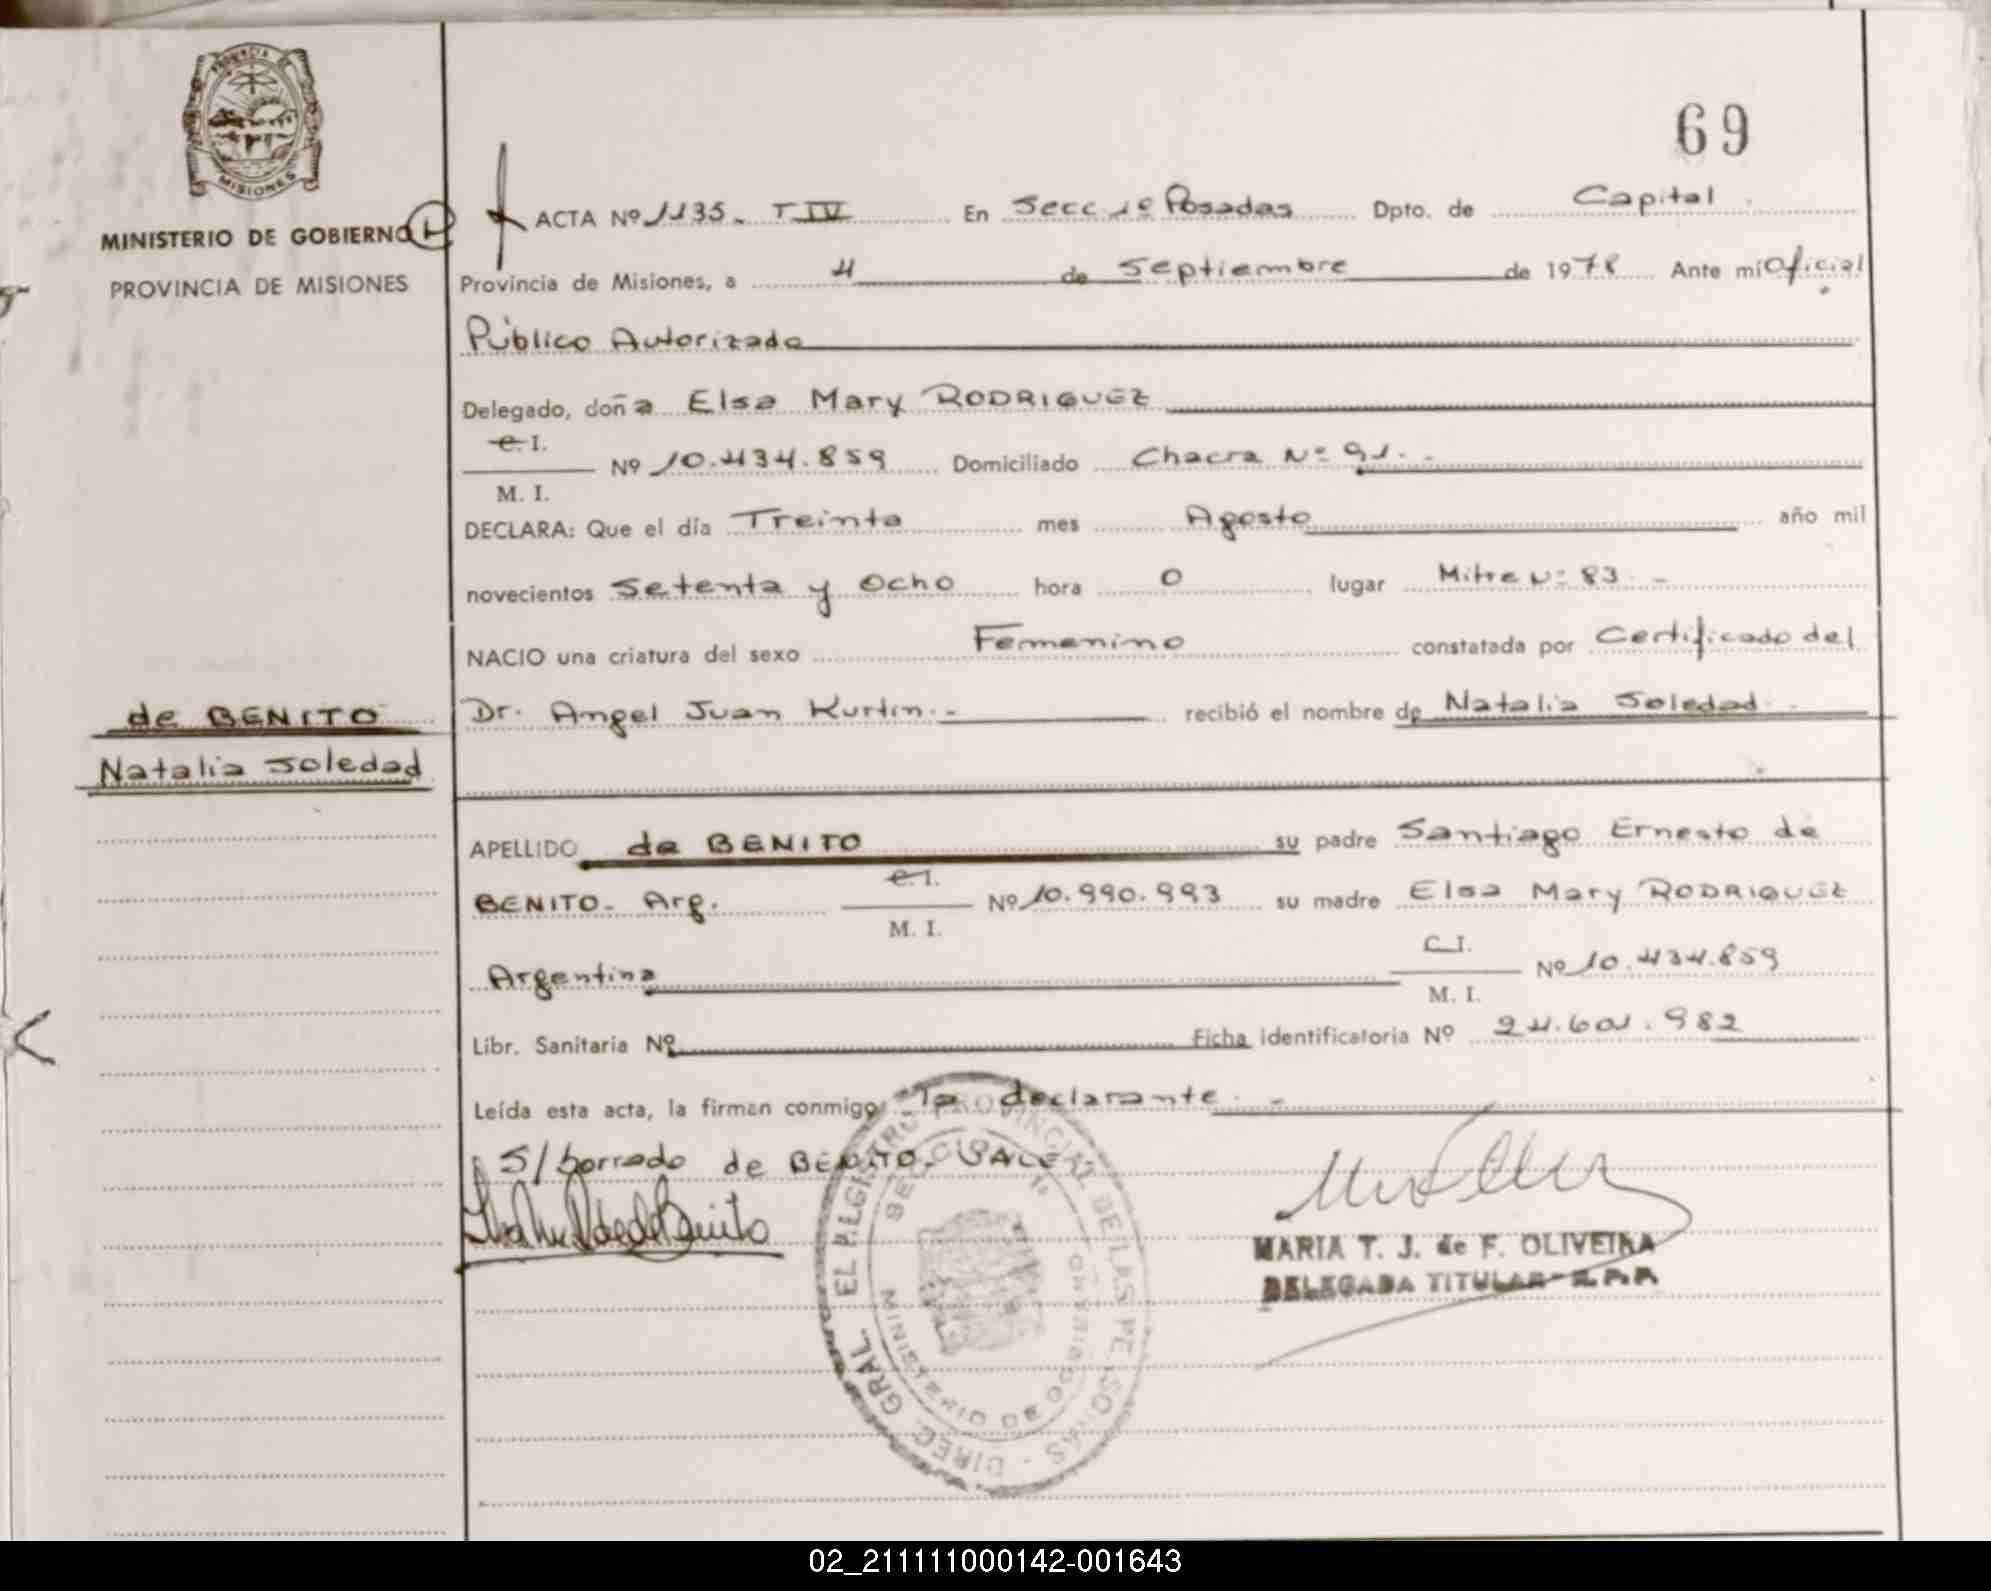 PROVINCIA DE
MISIONES
MINISTERIO DE GOBIERNO
PROVINCIA DE MISIONES
69
ACTA Nº 1135. T IV En Secc 1º Posadas Dpto. de Capital
Provincia de Misiones, a 4 de Septiembre de 1978 Ante mi Oficial
Público Autorizado
Delegado, doña Elsa Mary RODRIGUEZ
C.I.
Nº 10.434.859 Domiciliado Chacra Nº 91.-
M. I.
DECLARA: Que el día Treinta mes Agosto año mil
novecientos Setenta y Ocho hora 0 lugar Mitre Nº 83.-
NACIO una criatura del sexo Femenino constatada por Certificado del
Dr. Angel Juan Kurtin.- recibió el nombre de Natalia Soledad.-
de BENITO
Natalia Soledad
APELLIDO de BENITO su padre Santiago Ernesto de
C.I.
BENITO- Arg. Nº 10.990.993 su madre Elsa Mary RODRIGUEZ
M. I.
C.I.
Argentina Nº 10.434.859
M. I.
Libr. Sanitaria Nº Ficha identificatoria Nº 24.601.982
Leída esta acta, la firman conmigo la declarante.-
S/borrado de BENITO- VALE
de Benito
MARIA T. J. de F. OLIVEIRA
DELEGADA TITULAR
DIREC. GRAL. DEL REGISTRO PROVINCIAL DE LAS PERSONAS
02_211111000142-001643